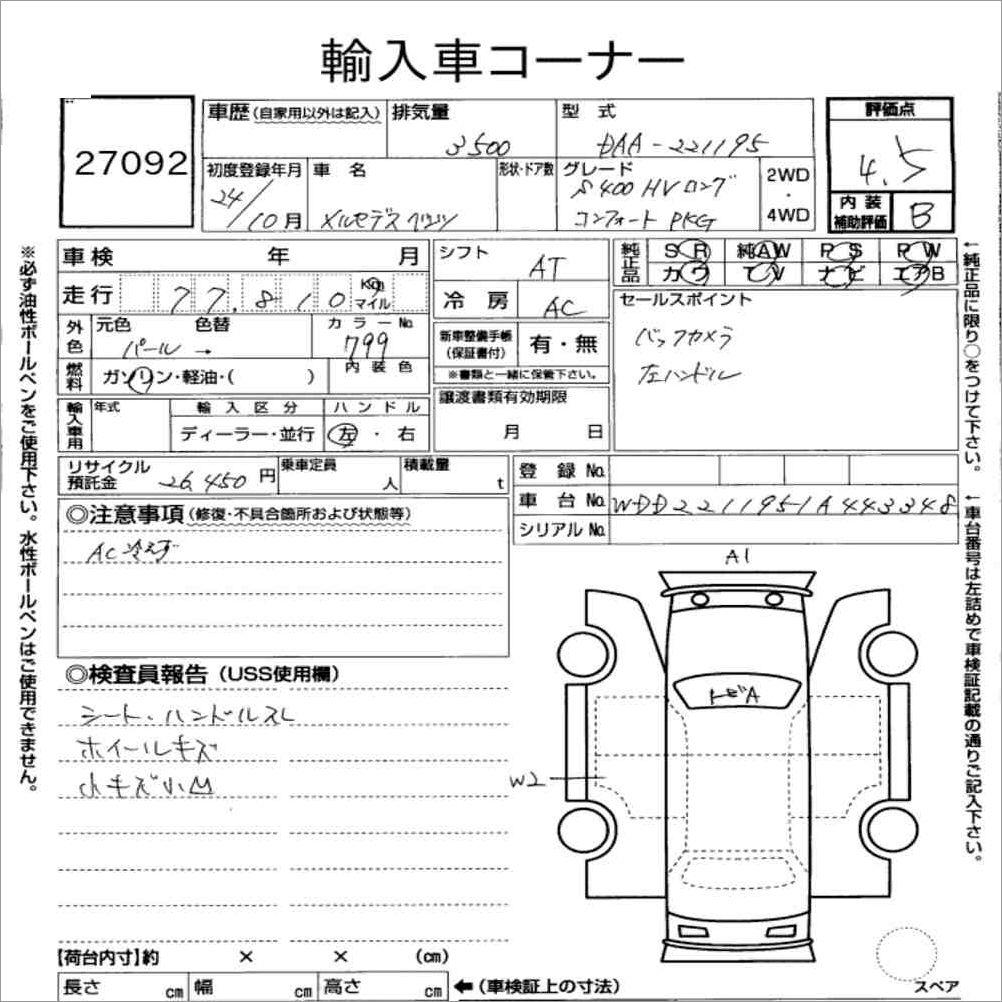 輸入車コーナー
27092
車歴(自家用以外は記入) 排気量 3500
型式 DAA-221195
評価点 4.5
内装補助評価 B
初度登録年月 24/10月
車名 メルセデスベンツ
形状・ドア数
グレード S400 HV ロング
コンフォート PKG
2WD・4WD
車検 年 月
走行 77,810 Km マイル
シフト AT
冷房 AC
純正品 SR 純AW PS PW
カワ TV ナビ エアB
外色 元色 色替 カラーNo.
パール → 799
燃料 ガソリン・軽油・( )
内装色
新車整備手帳(保証書付) 有・無
※書類と一緒に保管下さい。
セールスポイント
バックカメラ
左ハンドル
輸入車用 年式 輸入区分 ハンドル
ディーラー・並行 左・右
譲渡書類有効期限
月 日
リサイクル預託金 26,450円
乗車定員 人
積載量 t
登録No.
車台No. WDD2211951A443348
シリアルNo.
◎注意事項(修復・不具合箇所および状態等)
AC冷えず
◎検査員報告(USS使用欄)
シート・ハンドルスレ
ホイールキズ
小キズ小凹
A1
トビA
W2
スペア
【荷台内寸】約 × × (cm)
長さ cm 幅 cm 高さ cm ←(車検証上の寸法)
※必ず油性ボールペンをご使用下さい。水性ボールペンはご使用できません。
←純正品に限り○をつけて下さい。
←車台番号は左詰めで車検証記載の通りご記入下さい。